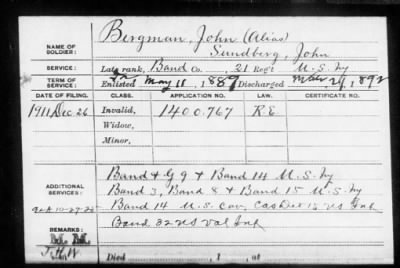 NAME OF SOLDIER:
Bergman, John (Alias)
Sundberg, John
SERVICE: Late rank, Band Co., 21 Reg't U.S. Inf
TERM OF SERVICE: Enlisted May 11, 1889 Discharged 1892
DATE OF FILING. CLASS. APPLICATION NO. LAW. CERTIFICATE NO.
1911 Dec 26 Invalid, 1400,767 R.E
Widow,
Minor,
ADDITIONAL SERVICES:
Band & G 9 & Band 14 U.S. Inf
Band 3, Band 8 & Band 15 U.S. Inf
Band 14 U.S. Cav, Cas Det 15 US Inf
Band 32 US Vol Inf
REMARKS:
Died , 1 , at